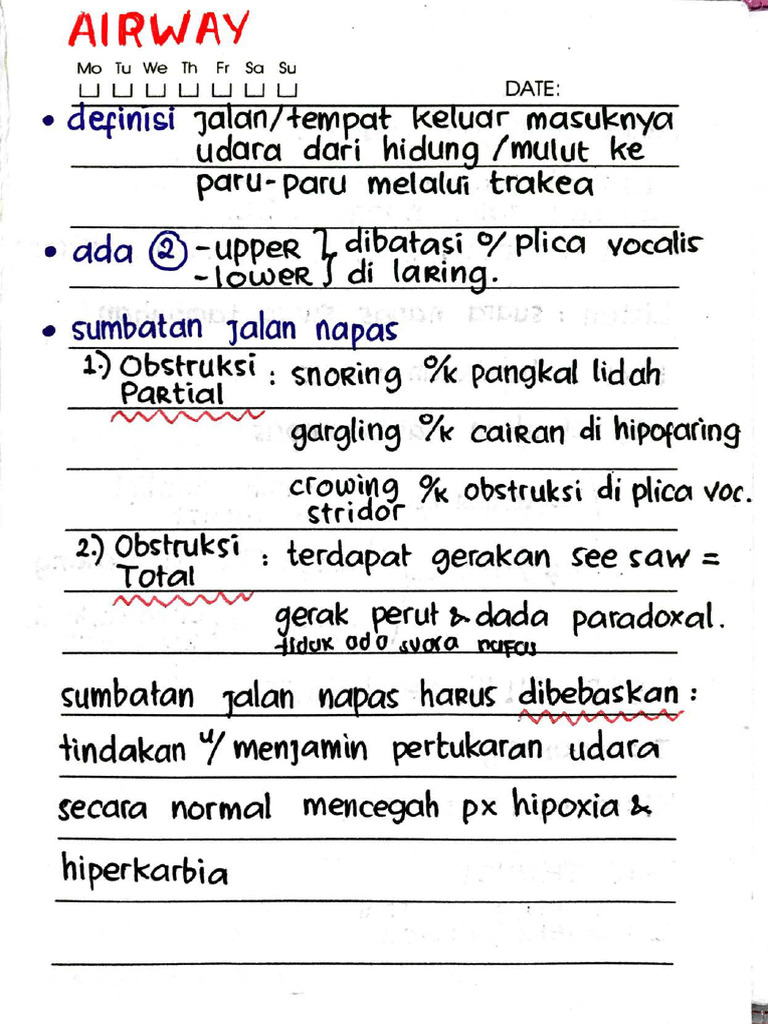 AIRWAY
Mo Tu We Th Fr Sa Su
DATE:
• definisi jalan/tempat keluar masuknya
udara dari hidung/mulut ke
paru-paru melalui trakea
• ada 2 - UPPER } dibatasi o/ plica vocalis
- LOWER } di laring.
• sumbatan jalan napas
1.) Obstruksi Partial : snoring o/k pangkal lidah
gargling o/k cairan di hipofaring
crowing o/k obstruksi di plica voc.
stridor
2.) Obstruksi Total : terdapat gerakan see saw =
gerak perut & dada paradoxal.
tidak ada suara nafas
sumbatan jalan napas harus dibebaskan :
tindakan u/ menjamin pertukaran udara
secara normal mencegah px hipoxia &
hiperkarbia